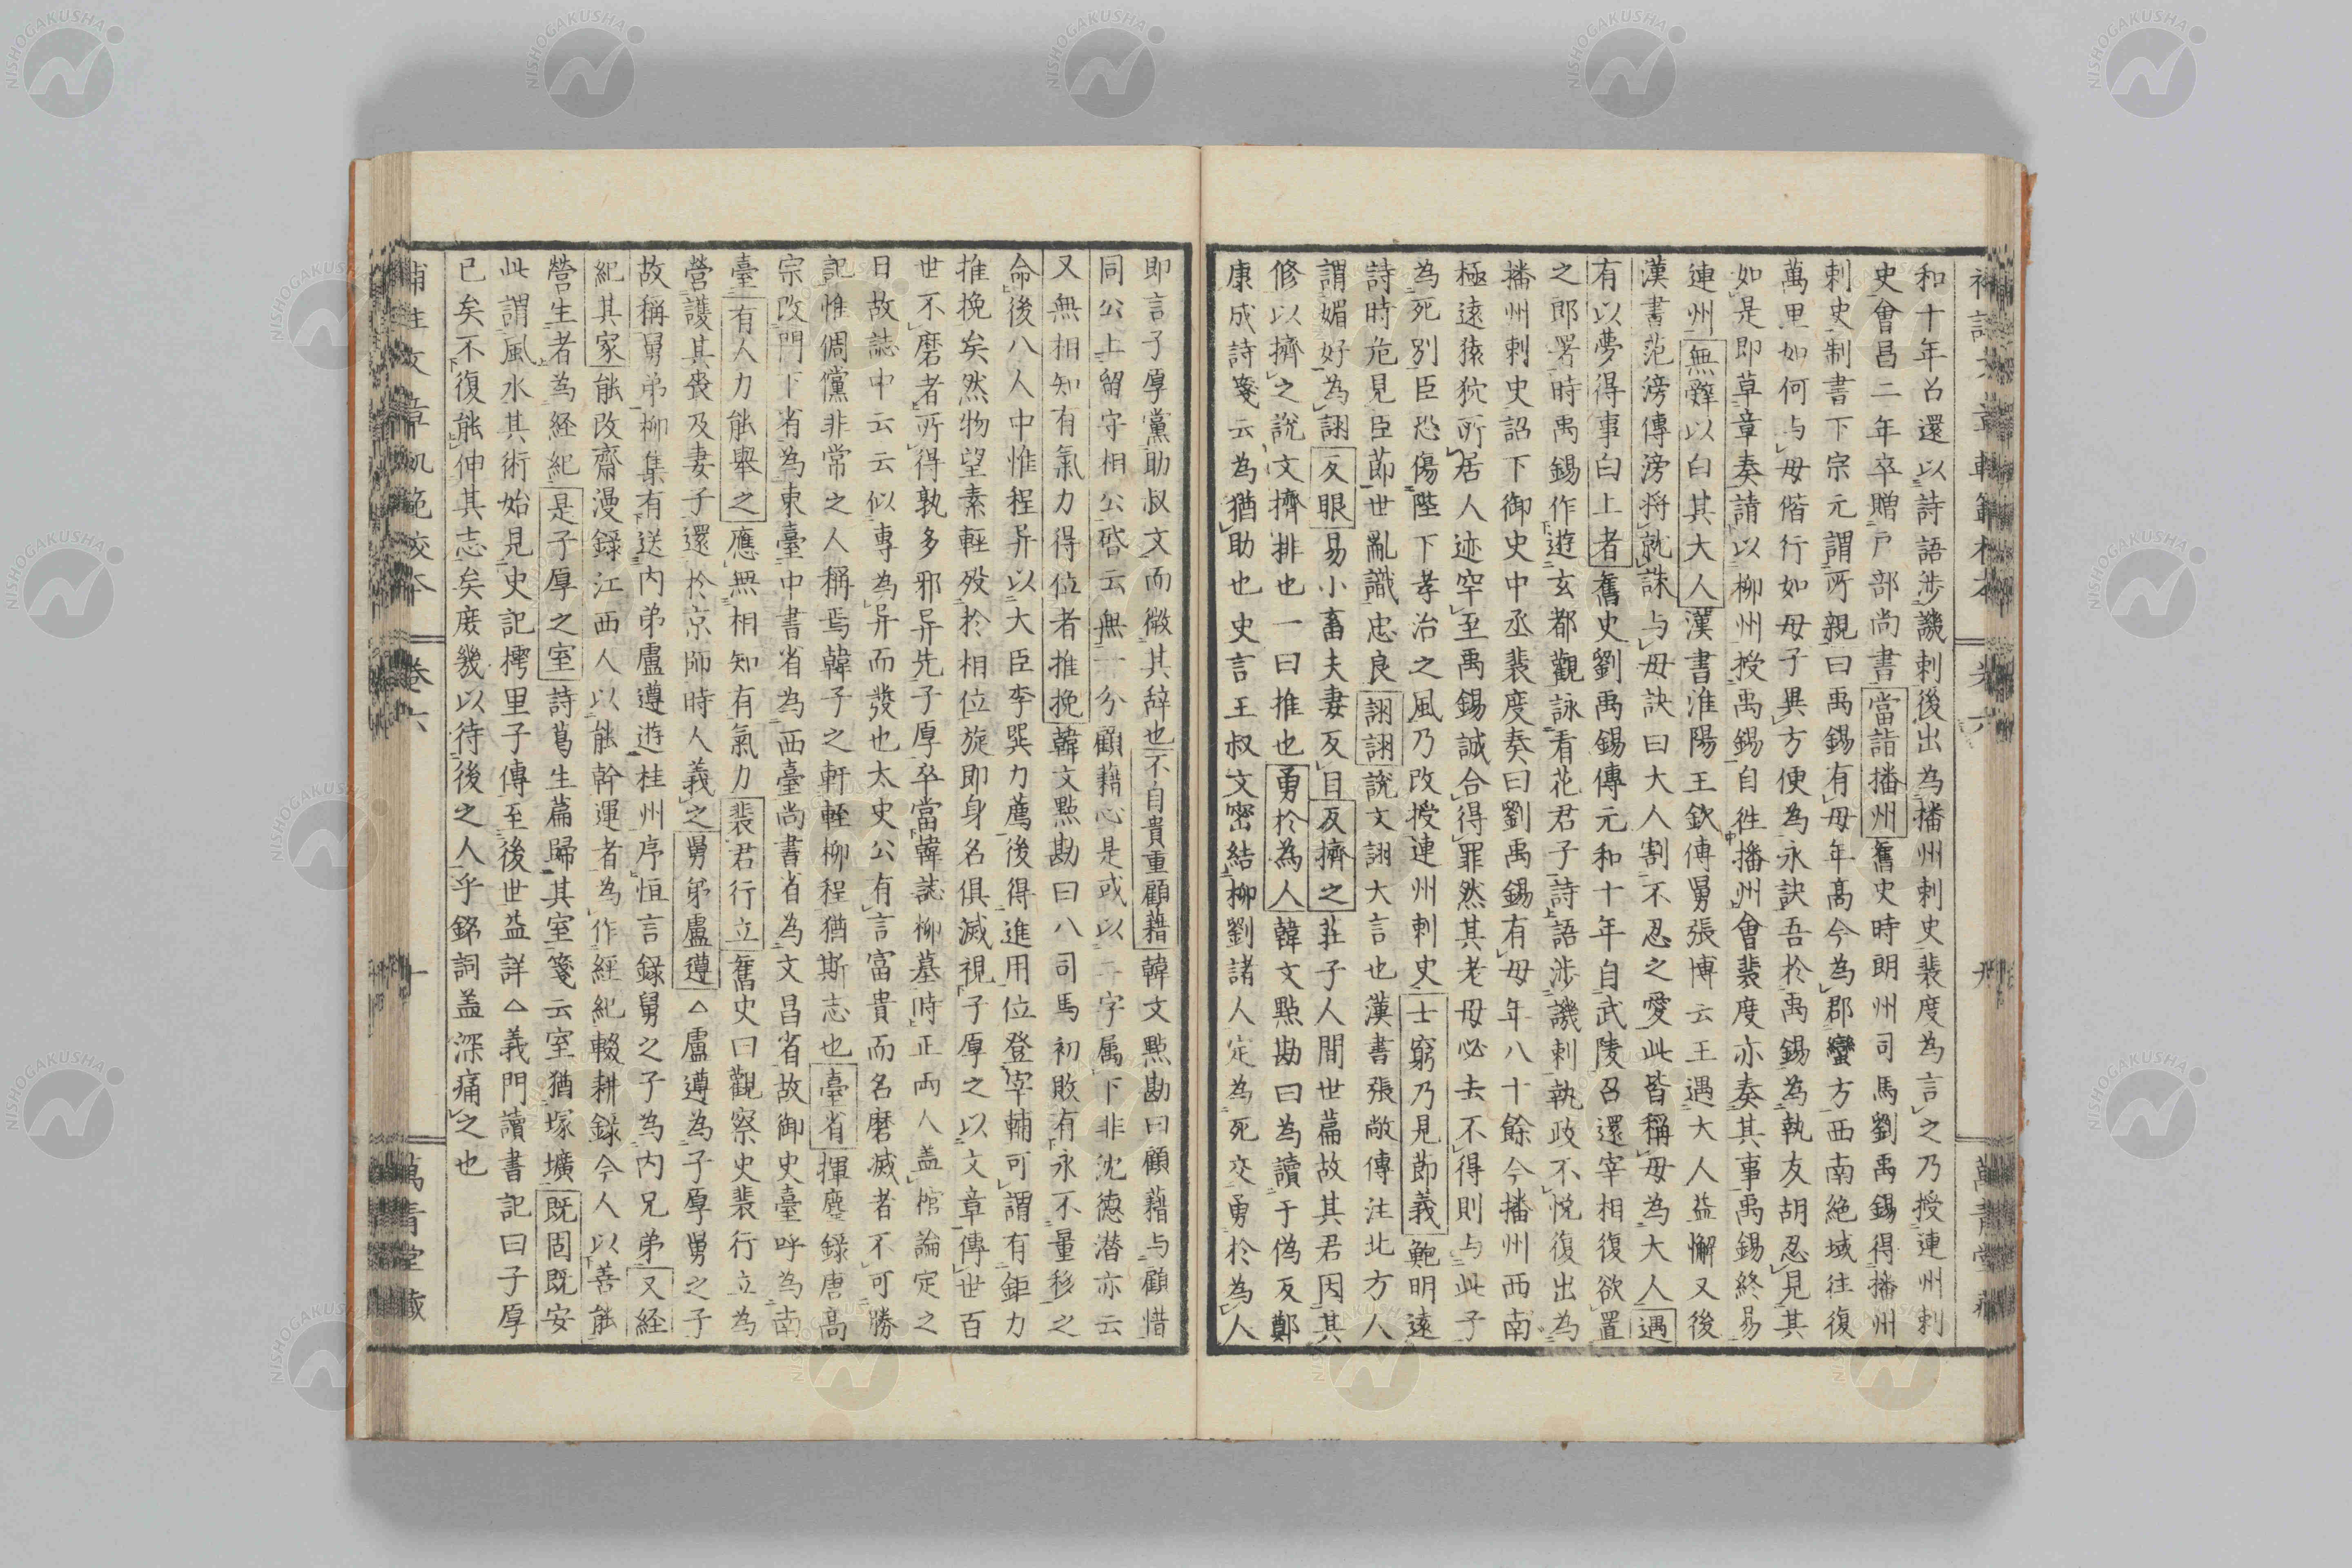 和十年召還以詩語涉譏刺後出為播州刺史裴度為言之乃授連州刺
史會昌二年卒贈戶部尚書當詣播州舊史時朗州司馬劉禹錫得播州
刺史制書下宗元謂所親曰禹錫有母年高今為郡蠻方西南絕域往復
萬里如何与母偕行如母子異方便為永訣吾於禹錫為執友胡忍見其
如是即草章奏請以柳州授禹錫自往播州會裴度亦奏其事禹錫終易
連州無辭以白其大人漢書淮陽王欽傳舅張博云王遇大人益懈又後
漢書范滂傳滂将就誅与母訣曰大人割不忍之愛此皆稱母為大人遇
有以夢得事白上者舊史劉禹錫傳元和十年自武陵召還宰相復欲置
之郎署時禹錫作遊玄都觀詠看花君子詩語涉譏刺執政不悅復出為
播州刺史詔下御史中丞裴度奏曰劉禹錫有母年八十餘今播州西南
極遠猿狖所居人迹罕至禹錫誠合得罪然其老母必去不得則与此子
為死別臣恐傷陛下孝治之風乃改授連州刺史士窮乃見節義鮑明遠
詩時危見臣節世亂識忠良詡詡說文詡大言也漢書張敞傳注北方人
謂媚好為詡反眼易小畜夫妻反目反擠之莊子人間世篇故其君因其
修以擠之說文擠排也一曰推也勇於為人韓文點勘曰為讀于偽反鄭
康成詩箋云為猶助也史言王叔文密結柳劉諸人定為死交勇於為人
即言子厚黨助叔文而微其辞也不自貴重顧藉韓文點勘曰顧藉与顧惜
同公上留守相公啓云無一分顧藉心是或以二字属下非沈德潜亦云
又無相知有氣力得位者推挽韓文點勘曰八司馬初敗有永不量移之
命後八人中惟程异以大臣李巽力薦後得進用位登宰輔可謂有鉅力
推挽矣然物望素輕歿於相位旋即身名俱滅視子厚之以文章傳世百
世不磨者所得孰多邪异先子厚卒當韓誌柳墓時正両人盖棺論定之
日故誌中云云似專為异而發也太史公有言富貴而名磨滅者不可勝
記惟倜儻非常之人稱焉韓子之軒輊柳程猶斯志也臺省揮麈錄唐高
宗改門下省為東臺中書省為西臺尚書省為文昌省故御史臺呼為南
臺有人力能舉之應無相知有氣力裴君行立舊史曰觀察史裴行立為
營護其喪及妻子還於京師時人義之舅弟盧遵△盧遵為子厚舅之子
故稱舅弟柳集有送内弟盧遵遊桂州序恒言録舅之子為内兄弟又経
紀其家能改齋漫録江西人以能幹運者為作經紀輟耕録今人以善能
營生者為経紀是子厚之室詩葛生篇歸其室箋云室猶塚壙既固既安
此謂風水其術始見史記樗里子傳至後世益詳△義門讀書記曰子厚
已矣不復能伸其志矣庶幾以待後之人乎銘詞盖深痛之也
卷六